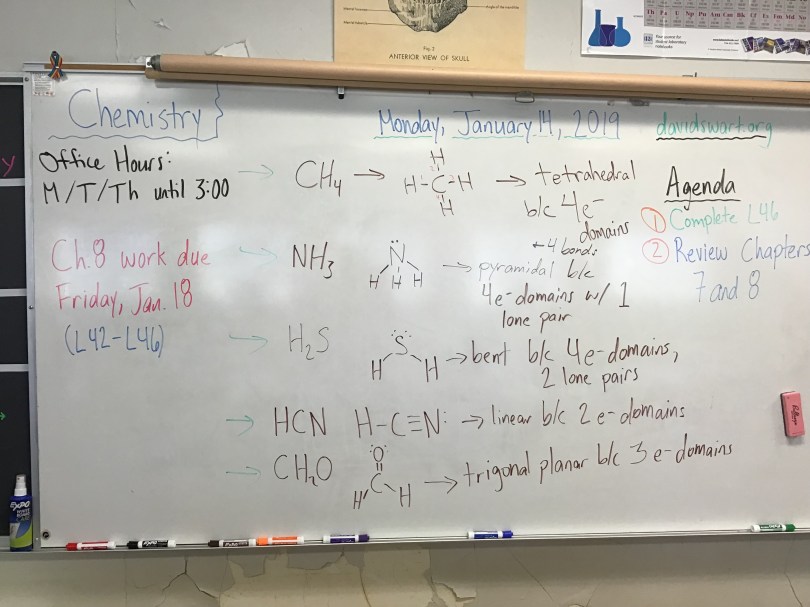 ANTERIOR VIEW OF SKULL
Chemistry
Monday, January 14, 2019
davidswart.org
Office Hours:
M/T/Th until 3:00
Ch.8 work due
Friday, Jan. 18
(L42-L46)
CH₄ → H-C-H → tetrahedral
H
H
b/c 4e⁻
domains
← 4 bonds
NH₃ N → pyramidal b/c
H H H
4e-domains w/ 1
lone pair
H₂S S → bent b/c 4e-domains,
H H
2 lone pairs
HCN H-C≡N: → linear b/c 2 e-domains
CH₂O O
C → trigonal planar b/c 3 e-domains
H H
Agenda
1 Complete L46
2 Review Chapters
7 and 8
EXPO